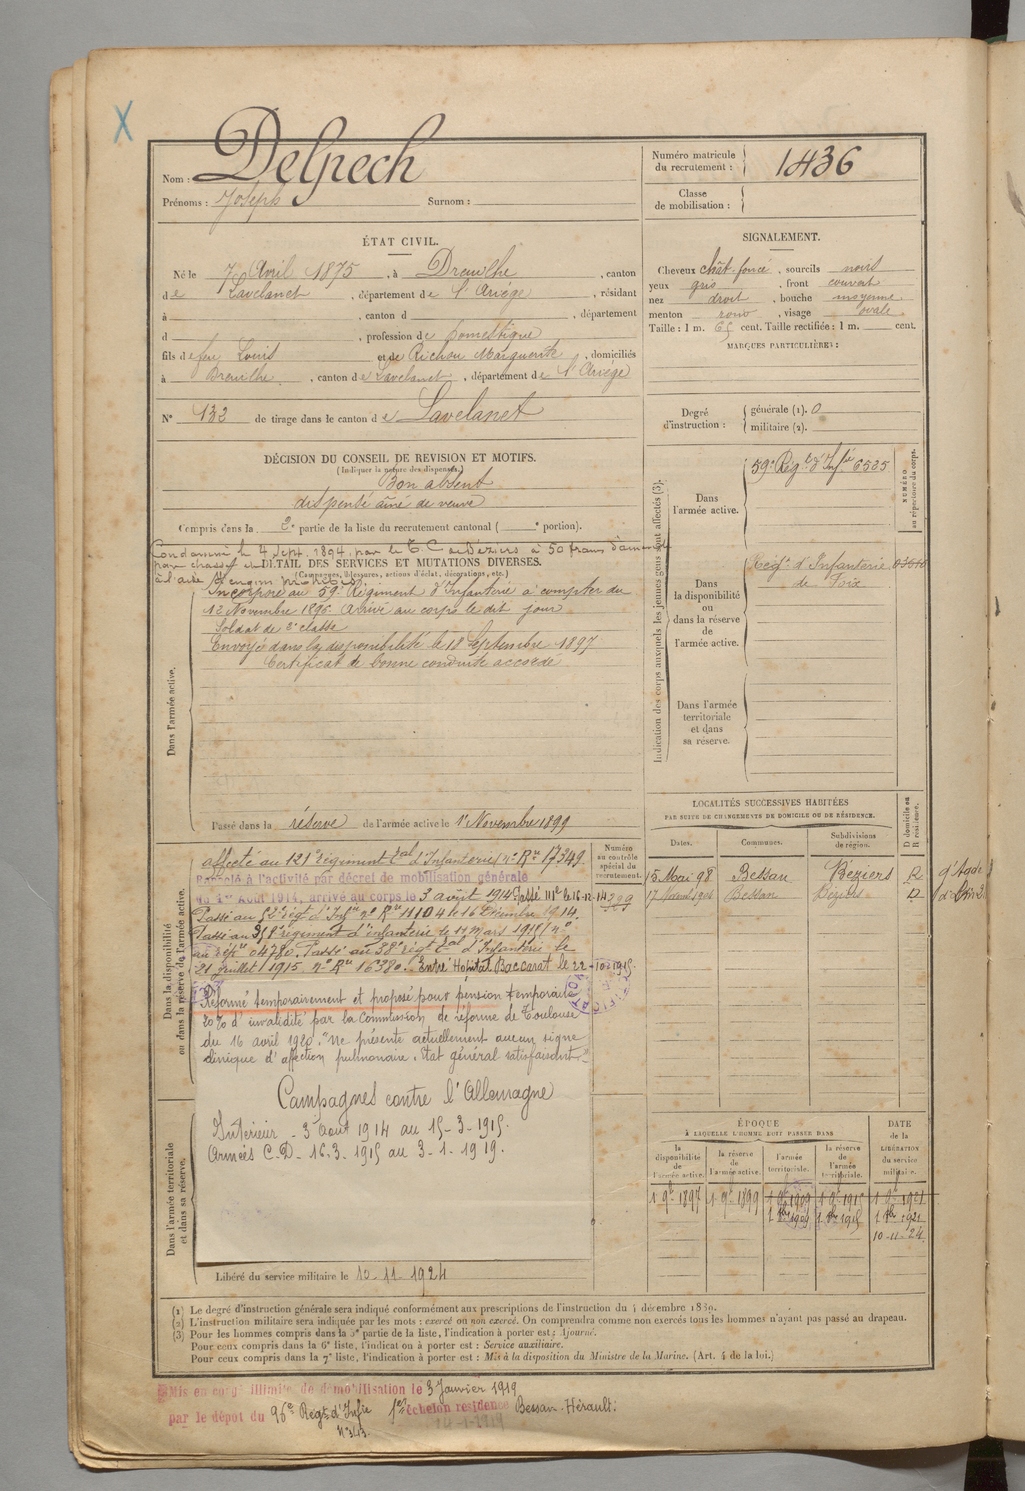 Nom : Delpech
Prénoms : Joseph Surnom :
Numéro matricule du recrutement : 1436
Classe de mobilisation :
ÉTAT CIVIL.
Né le 7 Avril 1875, à Dreuilhe, canton
de Lavelanet, département de l'Ariège, résidant
à , canton d , département
d , profession de Domestique
fils de feu Louis et de Richou Marguerite, domiciliés
à Dreuilhe, canton de Lavelanet, département de l'Ariège
N° 132 de tirage dans le canton de Lavelanet
SIGNALEMENT.
Cheveux chât-foncé, sourcils noirs
yeux gris, front couvert
nez droit, bouche moyenne
menton rond, visage ovale.
Taille : 1 m. 65 cent. Taille rectifiée : 1 m. cent.
MARQUES PARTICULIÈRES :
Degré d'instruction : générale (1). 0
militaire (2).
DÉCISION DU CONSEIL DE REVISION ET MOTIFS.
(Indiquer la nature des dispenses.)
Bon absent
dispensé aîné de veuve
Compris dans la 2e partie de la liste du recrutement cantonal ( e portion).
Condamné le 4 Sept. 1894 par le T. C. de Béziers à 50 francs d'amende
pour chasse
à l'aide d'engins prohibés
DÉTAIL DES SERVICES ET MUTATIONS DIVERSES.
(Campagnes, blessures, actions d'éclat, décorations, etc.)
Dans l'armée active.
Incorporé au 59e Régiment d'Infanterie à compter du
12 Novembre 1896 Arrivé au corps le dit jour
Soldat de 2e classe
Envoyé dans la disponibilité le 18 Septembre 1897
Certificat de bonne conduite accordé
Passé dans la réserve de l'armée active le 1er Novembre 1899
Indication des corps auxquels les jeunes gens sont affectés (3).
NUMÉRO au répertoire du corps.
Dans l'armée active.
59e Régt d'Infie 6535
Dans la disponibilité ou dans la réserve de l'armée active.
Régt d'Infanterie
de Foix
Dans l'armée territoriale et dans sa réserve.
Dans la disponibilité ou dans la réserve de l'armée active.
Numéro au contrôle spécial du recrutement.
affecté au 121e régiment tal d'Infanterie, n° Rre 17349.
Rappelé à l'activité par décret de mobilisation générale
du 1er Août 1914, arrivé au corps le 3 août 1914. Passé le 16-12-14
Passé au 52e régt d'Infie n° Rre 11104 le 16 Décembre 1914.
Passé au 358e régiment d'infanterie le 17 Mars 1915, n°
au répre 04780. Passé au 38e régt tal d'Infanterie le
21 Juillet 1915 n° Rre 16380. Entré Hôpital Baccarat le 22-10-1915.
Réformé temporairement et proposé pour pension temporaire
20% d'invalidité par la Commission de réforme de Toulouse
du 16 avril 1920. "Ne présente actuellement aucun signe
clinique d'affection pulmonaire. Etat général satisfaisant"
Campagnes contre l'Allemagne
Intérieur - 3 Août 1914 au 15-3-1915.
Armées C.D. - 16.3.1915 au 3-1-1919.
Dans l'armée territoriale et dans sa réserve.
Libéré du service militaire le 10-11-1924
LOCALITÉS SUCCESSIVES HABITÉES
PAR SUITE DE CHANGEMENTS DE DOMICILE OU DE RÉSIDENCE.
Dates. Communes. Subdivisions de région. D domicile ou R résidence.
15 Mai 98 Bessan Béziers R
Bessan Béziers D
ÉPOQUE
À LAQUELLE L'HOMME DOIT PASSER DANS
la disponibilité de l'armée active. la réserve de l'armée active. l'armée territoriale. la réserve de l'armée territoriale. DATE de la LIBÉRATION du service militaire.
1 9bre 1897 1 9bre 1899 1 9bre 1909 1 9bre 1915 1 9bre 1921
1 8bre 1909 1 8bre 1915 1 8bre 1921
10-11-24.
(1) Le degré d'instruction générale sera indiqué conformément aux prescriptions de l'instruction du 4 décembre 1889.
(2) L'instruction militaire sera indiquée par les mots : exercé ou non exercé. On comprendra comme non exercés tous les hommes n'ayant pas passé au drapeau.
(3) Pour les hommes compris dans la 5e partie de la liste, l'indication à porter est : Ajourné.
Pour ceux compris dans la 6e liste, l'indication à porter est : Service auxiliaire.
Pour ceux compris dans la 7e liste, l'indication à porter est : Mis à la disposition du Ministre de la Marine. (Art. 4 de la loi.)
Mis en congé illimité de démobilisation le 3 Janvier 1919
par le dépôt du 96e Régt d'Infie 1er échelon résidence Bessan - Hérault.
14-1-1919